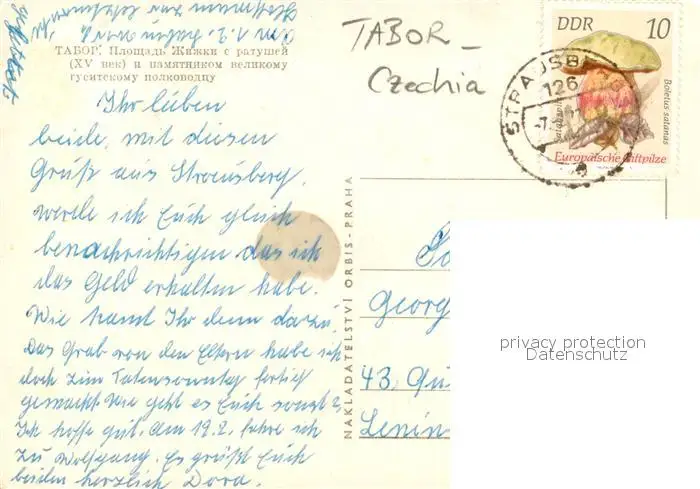 TABOR -
Czechia
ТАБОР. Площадь Жижки с ратушей
(XV век) и памятником великому
гуситскому полководцу
Ihr lieben
beide, mit diesen
Gruß aus Strausberg,
werde ich Euch gleich
benachrichtigen das ich
das Geld erhalten habe.
Wie kamt Ihr denn dazu?
Das Grab von den Eltern habe ich
doch zum Totensonntag fertig
gemacht. Wie geht es Euch sonst?
Ich hoffe gut. Am 19.2. fahre ich
zu Wolfgang. Es grüßt Euch
beiden herzlich Dora.
NAKLADATELSTVÍ ORBIS - PRAHA
DDR 10
Boletus satanas
Satanspilz
Europäische Giftpilze
STRAUSBERG
126
Georg
43. Gu
Lenin
privacy protection
Datenschutz